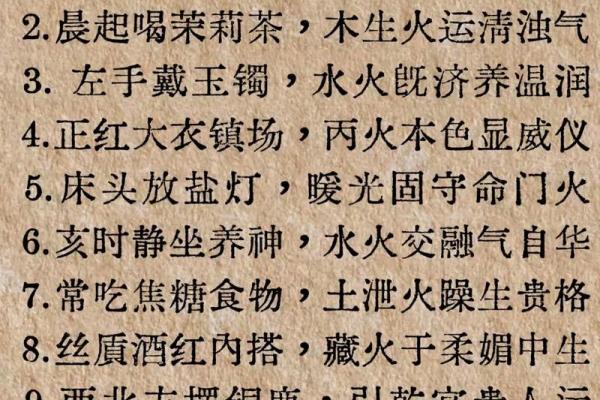 2.晨起喝茉莉茶，木生火运清浊气
3. 左手戴玉镯，水火既济养温润
4.正红大衣镇场，丙火本色显威仪
5.床头放盐灯，暖光固守命门火
6.亥时静坐养神，水火交融气自华
7.常吃焦糖食物，土泄火躁生贵格
8.丝質酒红內搭，藏火于柔媚中生